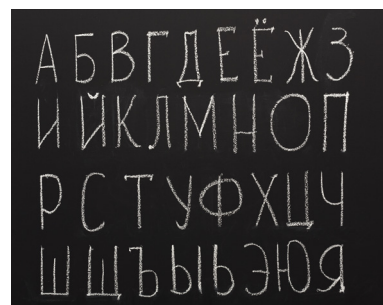 АБВГДЕЁЖЗ
ИЙКЛМНОП
РСТУФХЦЧ
ШЩЪЫЬЭЮЯ